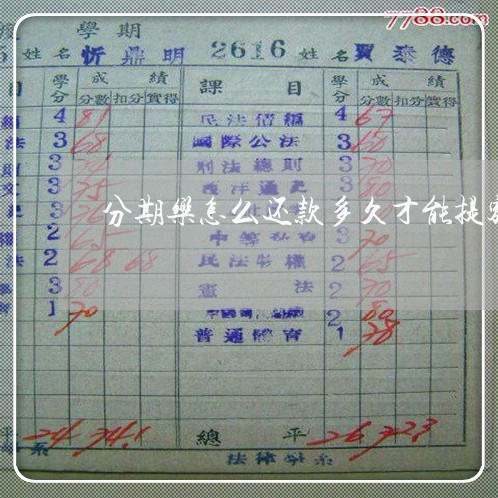 7788.com
學期
姓名 忻鼎明 2616 姓名 賈泰德
目 學分 成績 課目 學分 成績
分數 扣分 實得 分數 扣分 實得
4 81 民法債編 4 67
法 3 68 國際公法 3 60
3 刑法總則 3 70
3 75 西洋通史 3 80
3
分期樂怎么还款多久才能提
2 65 3 70
法 2 68 68 民法物權 2 65
3 80 憲法 2 70
1 70 2 80
普通體育 1 78
平 24 74.1 總平 26 72.3
系 法律學系